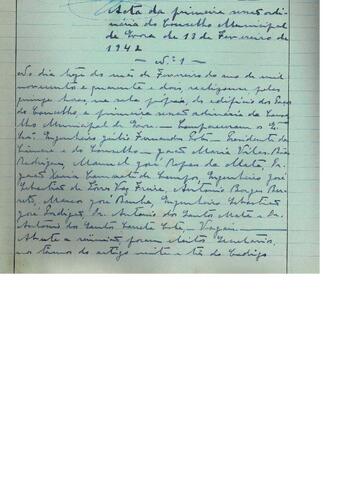 Acta da primeira sessão ordi-
nária do Conselho Municipal
de Évora de 13 de Fevereiro de
1942
— Nº 1 —
No dia treze do mês de Fevereiro do ano de mil
novecentos e quarenta e dois, realizou-se, pelas
quinze horas, na sala própria, do edifício dos Paços
do Concelho, a primeira sessão ordinária do Conse-
lho Municipal de Évora. — Compareceram os Se-
nhores Engenheiro Júlio Fernandes — Presidente da
Câmara e do Conselho — João Maria Vilas-Boas
Rodrigues, Manuel José da Mata,
Xavier de Campos, Engenheiro José
Sebastião de Torres Vaz Freire, António Borges Bar-
reto, Marcos José Banha, Engenheiro Sebastião
José Perdigão, Dr. António dos Santos Mata e Dr.
António dos Santos — Vogais. —
Aberta a reunião, foram eleitos Secretários,
nos termos do artigo vinte e três do Código